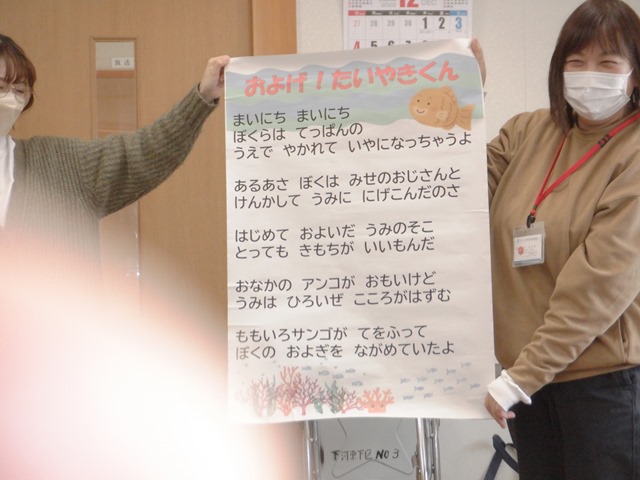 12 DEC
27 28 29 30 1 2 3
およげ！たいやきくん
まいにち まいにち
ぼくらは てっぱんの
うえで やかれて いやになっちゃうよ
あるあさ ぼくは みせのおじさんと
けんかして うみに にげこんだのさ
はじめて およいだ うみのそこ
とっても きもちが いいもんだ
おなかの アンコが おもいけど
うみは ひろいぜ こころがはずむ
ももいろサンゴが てをふって
ぼくの およぎを ながめていたよ
NO 3